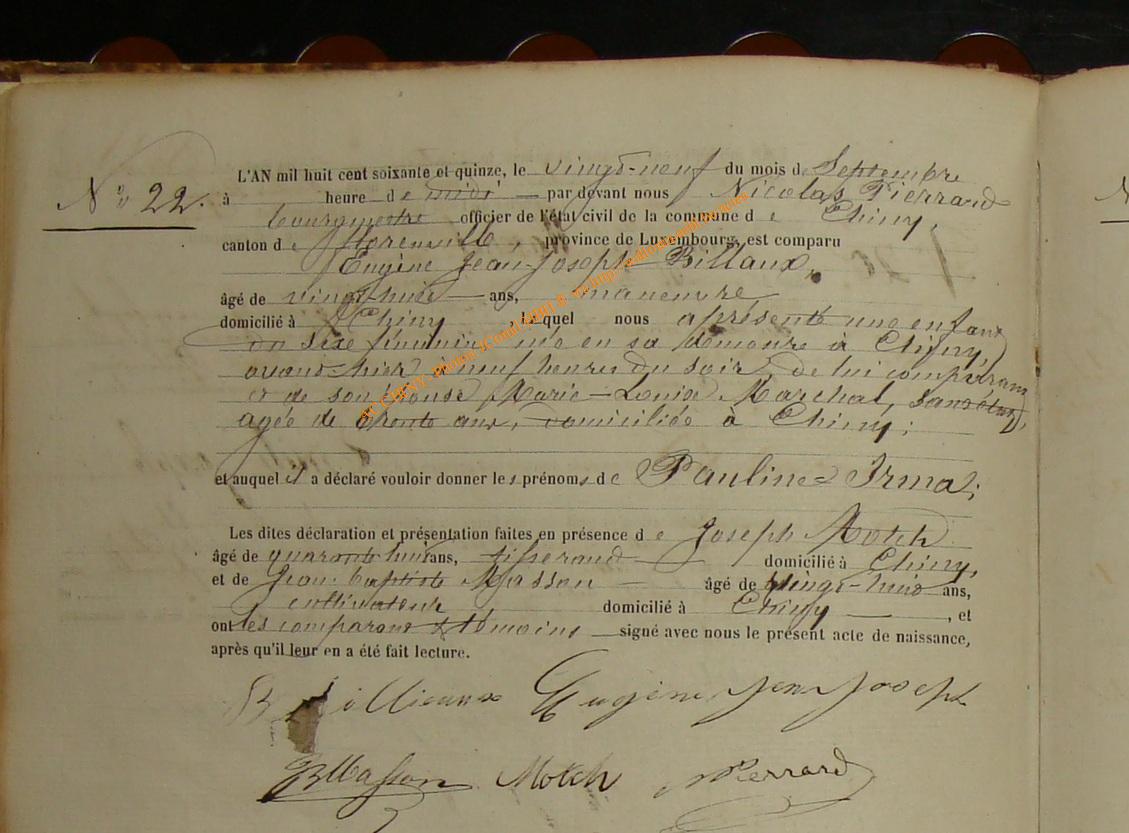 L'AN mil huit cent soixante et quinze, le vingt-neuf du mois de Septembre
N° 22. à heure de midi — par devant nous Nicolas Pierrard
bourgmestre officier de l'état civil de la commune de Chiny,
canton de Florenville, province de Luxembourg, est comparu
Eugène Jean-Joseph Billaux,
âgé de vingt-huit — ans, manœuvre
domicilié à Chiny, lequel nous a présenté un enfant
du sexe féminin née en sa demeure à Chiny,
avant-hier à neuf heures du soir, de lui comparant
et de son épouse Marie-Louise Marchal, sans état,
agée de trente ans, domiciliée à Chiny;
et auquel il a déclaré vouloir donner les prénoms de Pauline Irma;
Les dites déclaration et présentation faites en présence de Joseph Motch
âgé de quarante huit ans, tisserand domicilié à Chiny,
et de Jean-baptiste Masson — âgé de vingt-huit ans,
cultivateur domicilié à Chiny —, et
ont les comparant & témoins — signé avec nous le présent acte de naissance,
après qu'il leur en a été fait lecture.
Eugène Jean Joseph
JBMasson Motch NPierrard